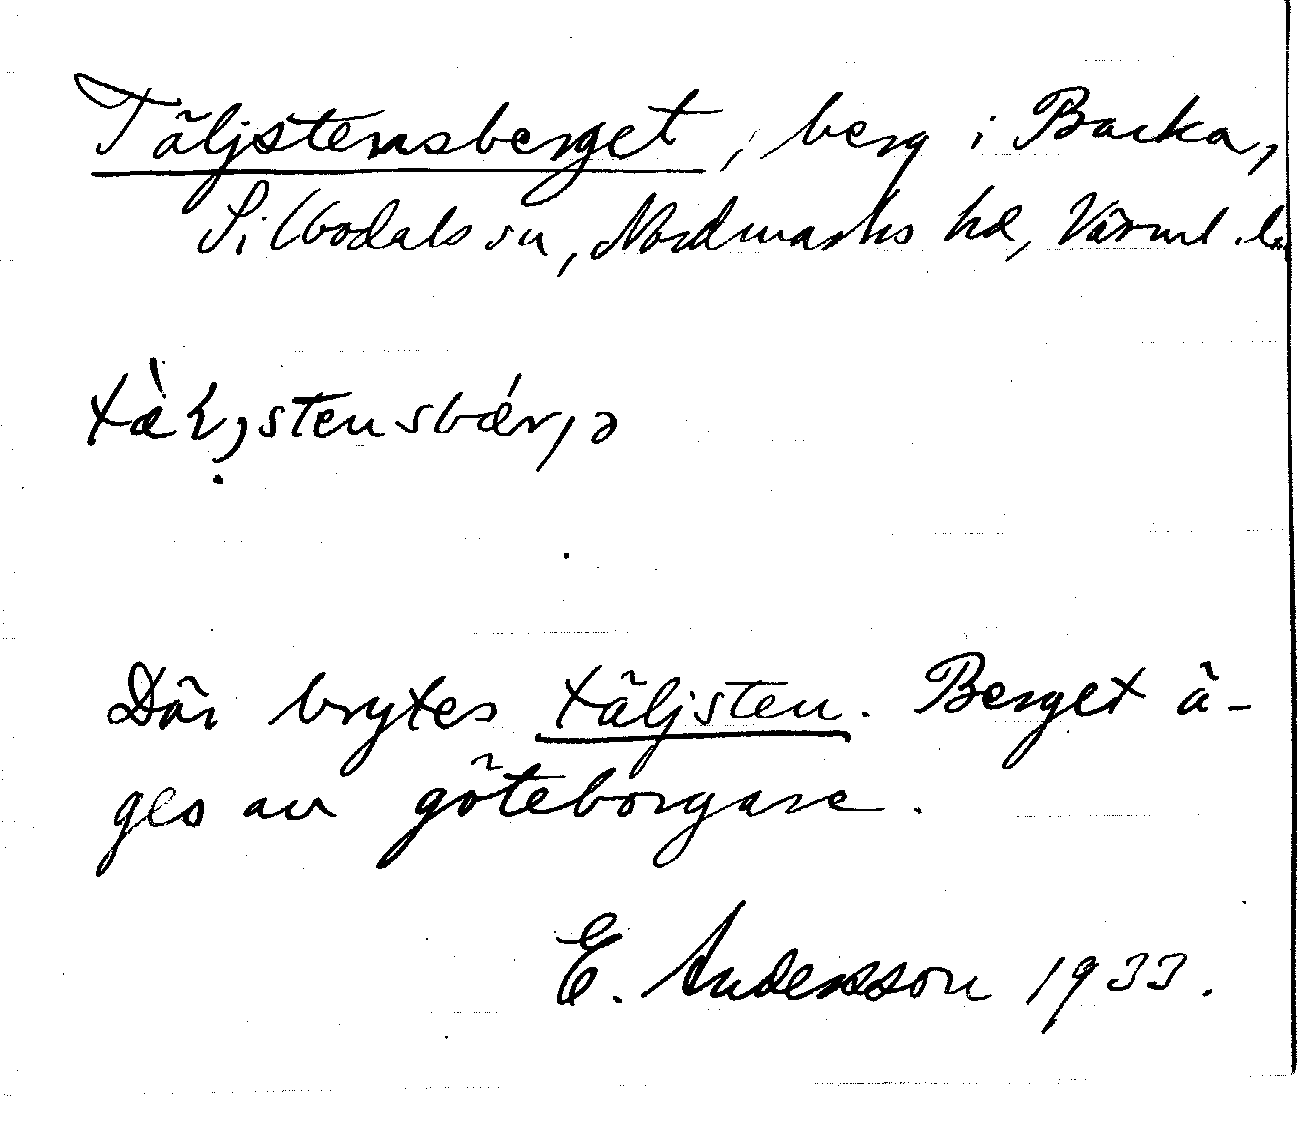 Täljstensberget, berg i Backa,
Silbodals sn, Nordmarks hd, Värml. l.
tæ̀ljstensbǽrjə
Där brytes täljsten. Berget ä-
ges av göteborgare.
E. Andersson 1933.